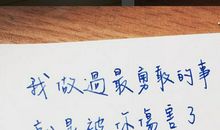 我做過最勇敢的事
就是被你傷害了